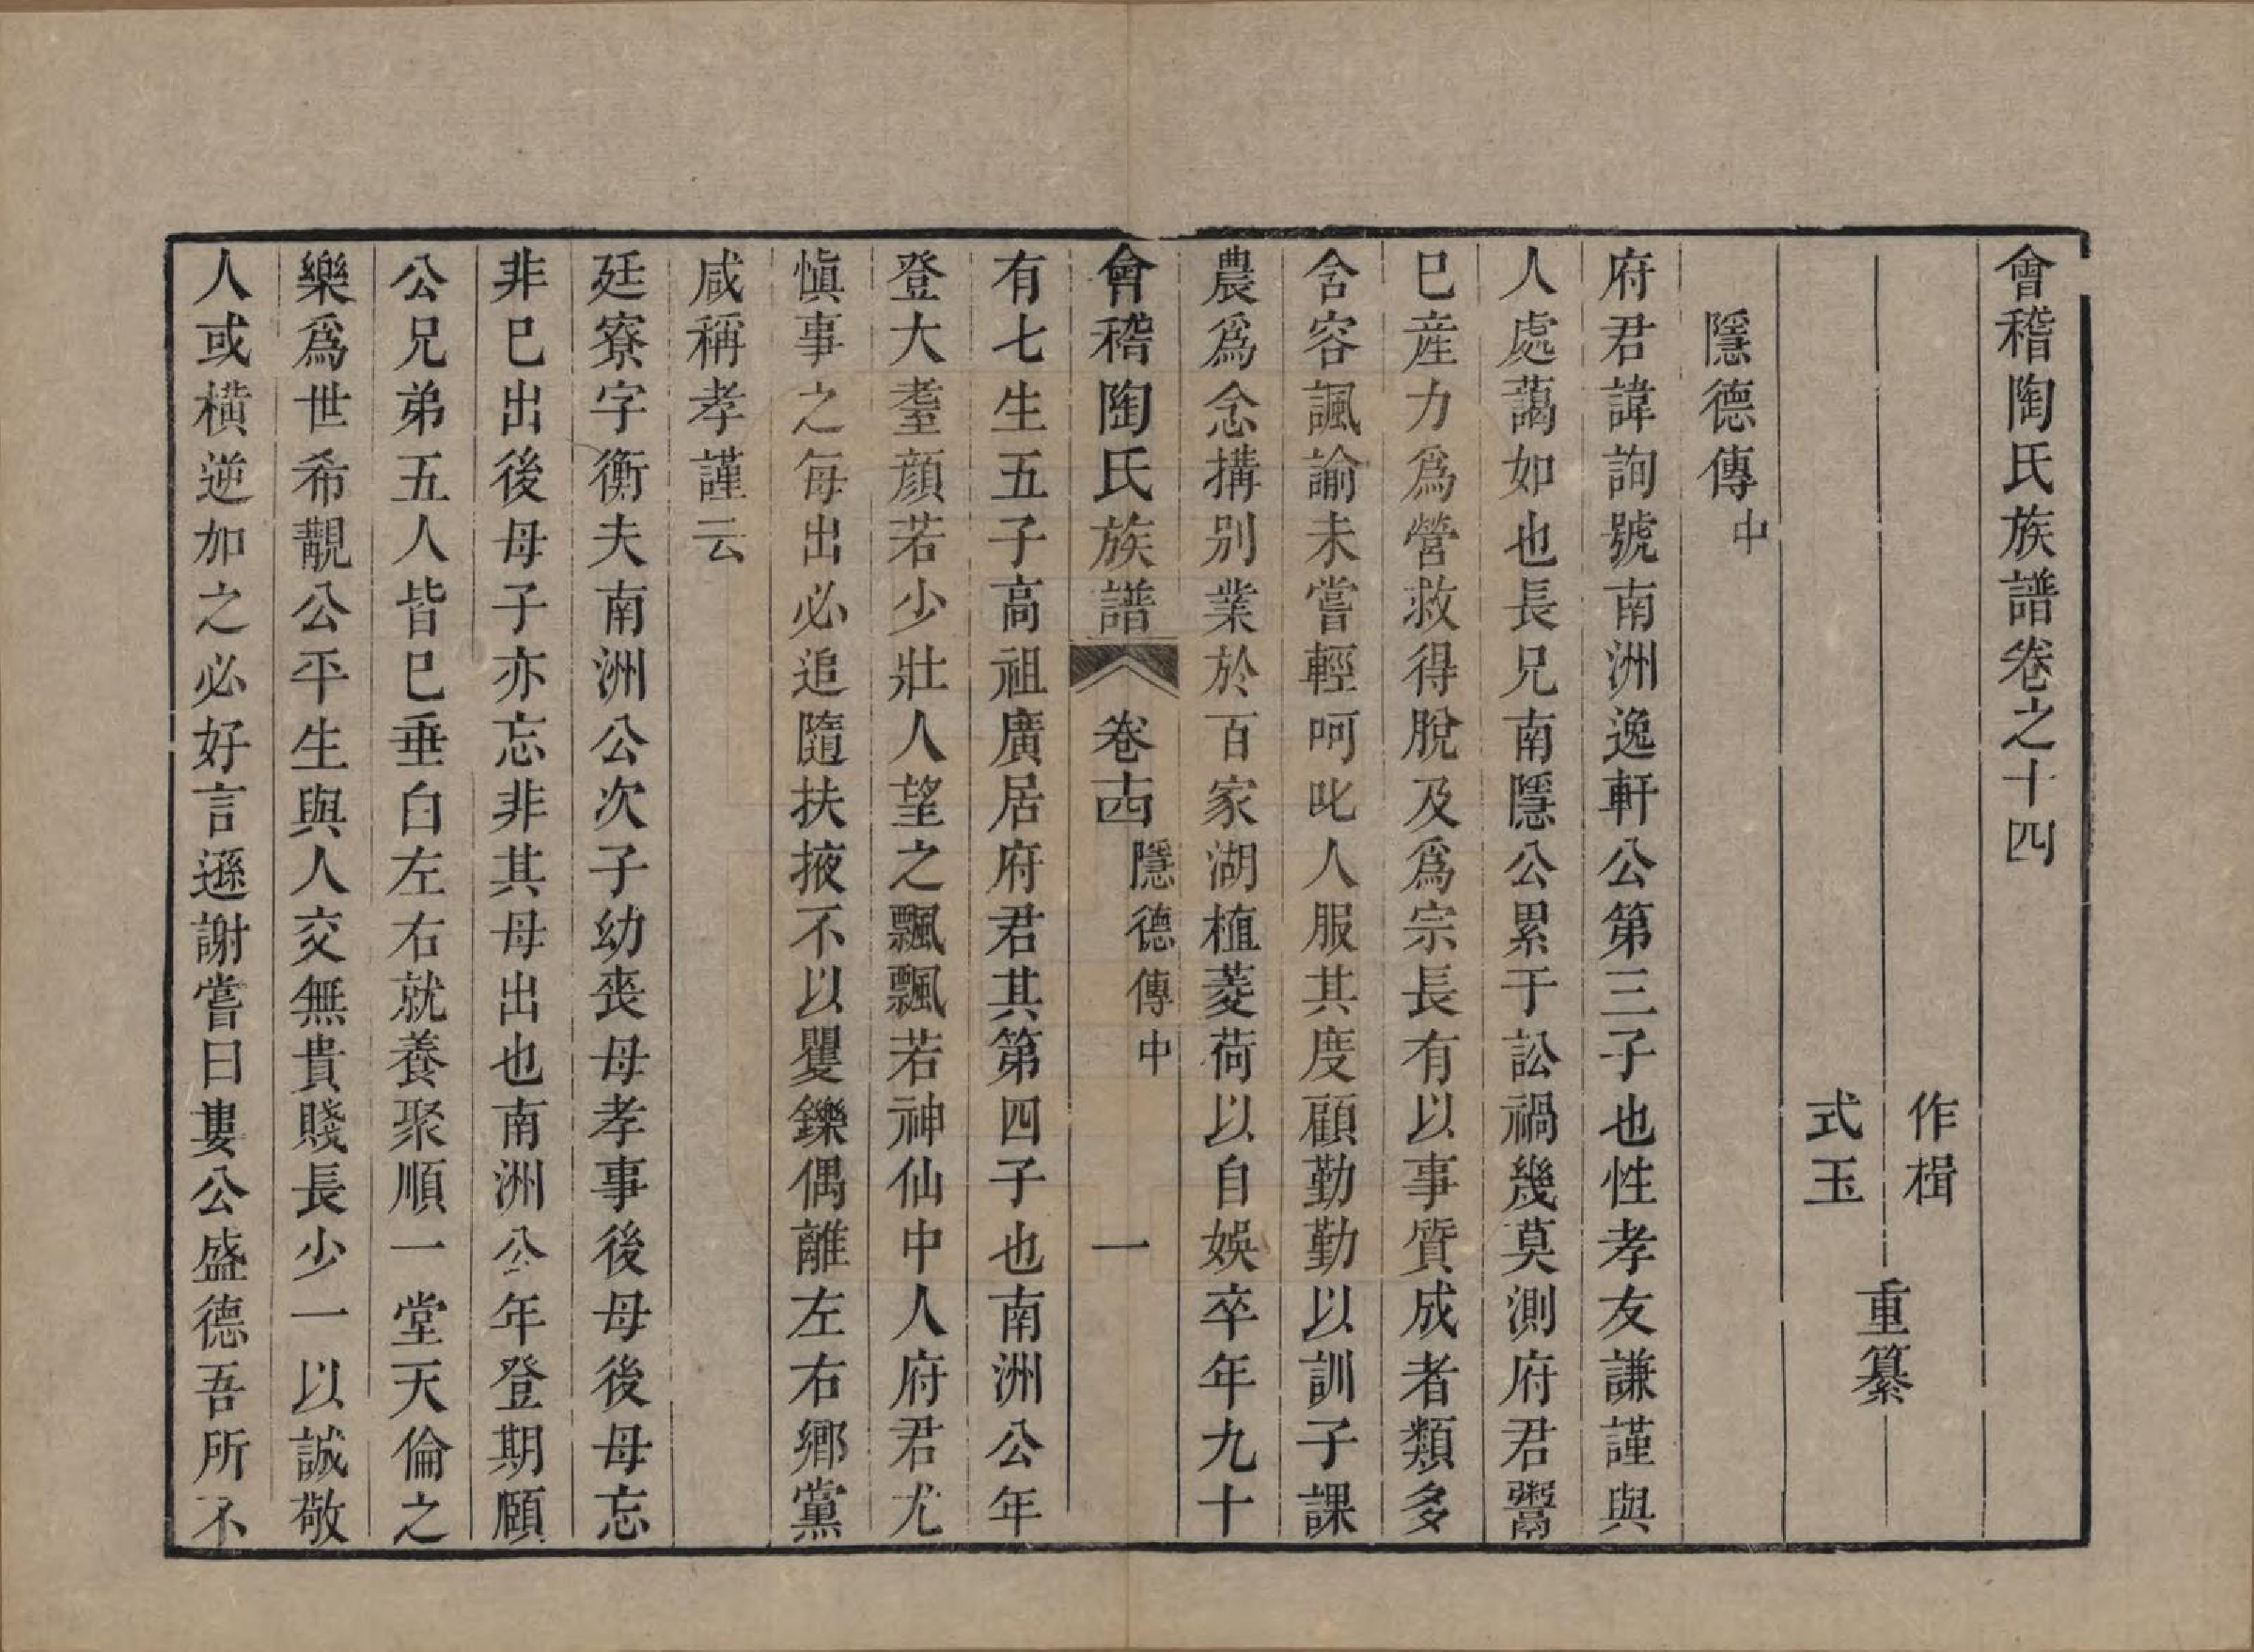 會稽陶氏族譜卷之十四
作楫
式玉
重纂
隱德傳中
府君諱詢號南洲逸軒公第三子也性孝友謙謹與
人處藹如也長兄南隱公累于訟禍幾莫測府君鬻
巳産力爲營救得脫及爲宗長有以事質成者類多
含容諷諭未嘗輕呵叱人服其度顧勤勤以訓子課
農爲念搆别業於百家湖植菱荷以自娛卒年九十
會稽陶氏族譜 卷十四 隱德傳中 一
有七生五子高祖廣居府君其第四子也南洲公年
登大耋顔若少壯人望之飄飄若神仙中人府君尤
愼事之每出必追隨扶掖不以矍鑠偶離左右鄉黨
咸稱孝謹云
廷寮字衡夫南洲公次子幼喪母孝事後母後母忘
非巳出後母子亦忘非其母出也南洲公年登期頤
公兄弟五人皆巳垂白左右就養聚順一堂天倫之
樂爲世希覯公平生與人交無貴賤長少一以誠敬
人或橫逆加之必好言遜謝嘗曰婁公盛德吾所不